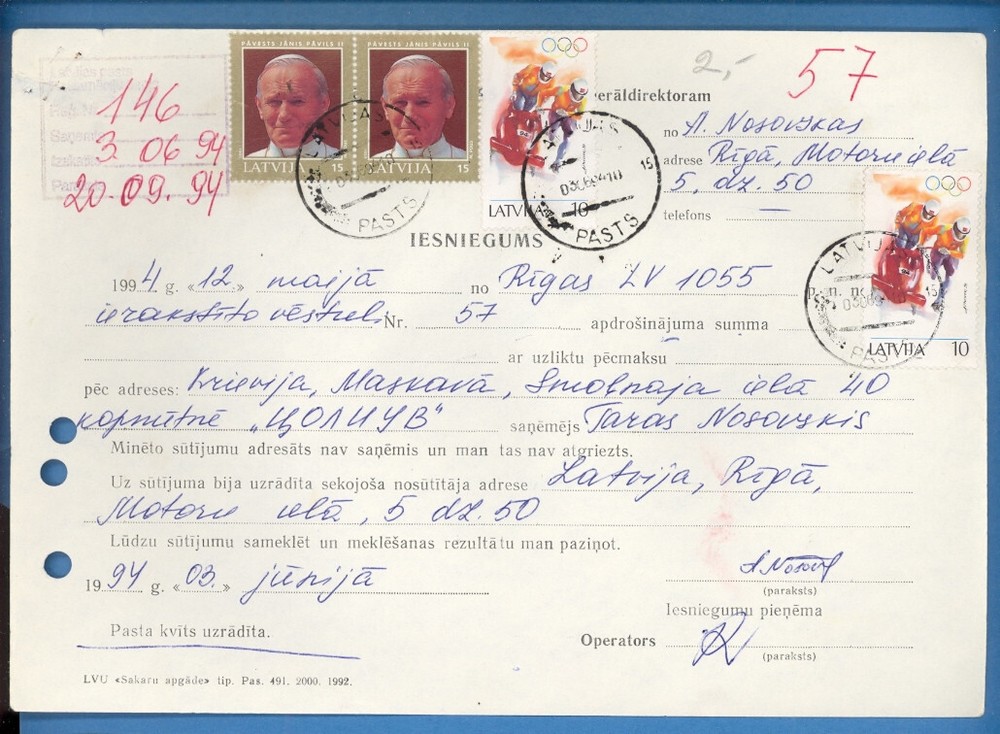 PĀVESTS JĀNIS PĀVILS II PĀVESTS JĀNIS PĀVILS II
LATVIJA 15 LATVIJA 15
LATVIJA 10
LATVIJA 10
LATVIJAS PASTS
LATVIJAS PASTS 15
LATVIJAS PASTS 15
146
3 06 94
20.09. 94
2,-
57
erāldirektoram
no A. Nosovskas
adrese Rīgā, Motoru ielā
5, dz. 50
telefons
IESNIEGUMS
1994. g. «12» maijā no Rīgas LV 1055
ierakstīto vēstuli Nr. 57 apdrošinājuma summa
ar uzliktu pēcmaksu
pēc adreses: Krievija, Maskavā, Smolnaja ielā 40
kopmītnē „ЦОЛИУВ" saņēmējs Taras Nosovskis
Minēto sūtījumu adresāts nav saņēmis un man tas nav atgriezts.
Uz sūtījuma bija uzrādīta sekojoša nosūtītāja adrese Latvija, Rīgā,
Motoru ielā, 5 dz. 50
Lūdzu sūtījumu sameklēt un meklēšanas rezultātu man paziņot.
1994 g. «03.» jūnijā
(paraksts)
Iesniegumu pieņēma
Pasta kvīts uzrādīta.
Operators
(paraksts)
LVU «Sakaru apgāde» tip. Pas. 491. 2000. 1992.